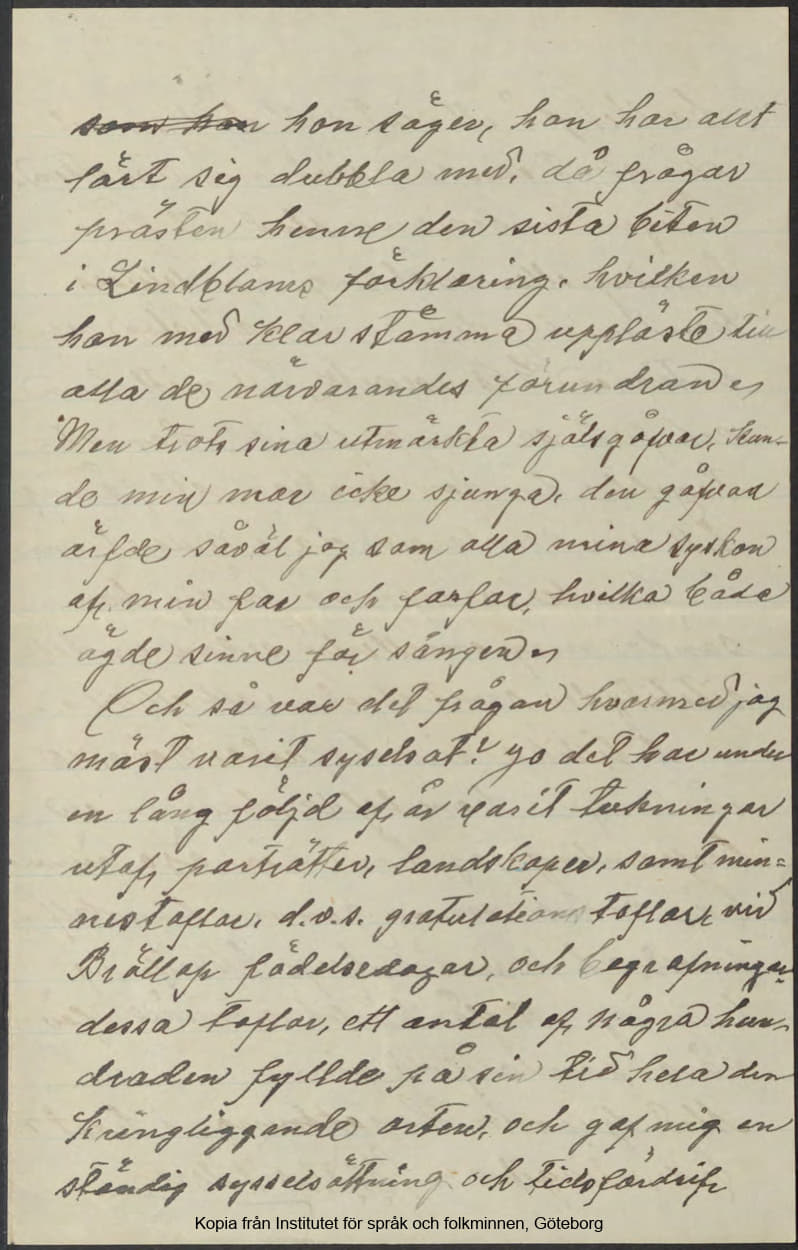 som han hon säger, han har allt
lärt sig dubbla med, då frågar
prästen henne den sista biten
i Lindbloms förklaring. hvilken
hon med klar stämma uppläste till
alla de närvarandes förundran.
Men trots sina utmärkta själsgåfvor, kun-
de min mor icke sjunga, den gåfvan
ärfde såväl jag som alla mina syskon
af min far och farfar, hvilka både
ägde sinne för sången.
Och så var det frågan hvarmed jag
mäst varit syselsat! jo det har under
en lång följd af år varit tekningar
utaf porträtter, landskaper, samt min=
nestaflor, d.v.s. gratulations taflor, vid
Bröllop födelsedagar, och begrafningar
dessa taflor, ett antal af några hun-
draden fyllde på sin tid hela den
kringliggande orten, och gaf mig en
ständig sysselsättning och tidsfördrif
Kopia från Institutet för språk och folkminnen, Göteborg